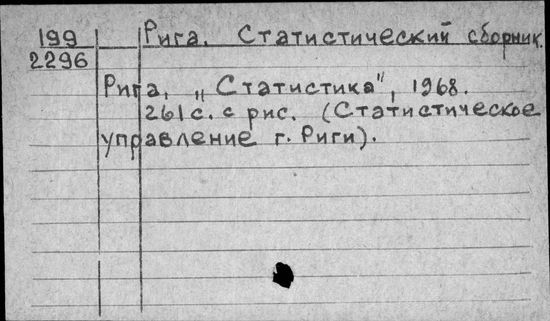 199 Рига. Статистический сборник.
2296
Рига, „Статистика", 1968.
261 с. с рис. (Статистическое
управление г. Риги).